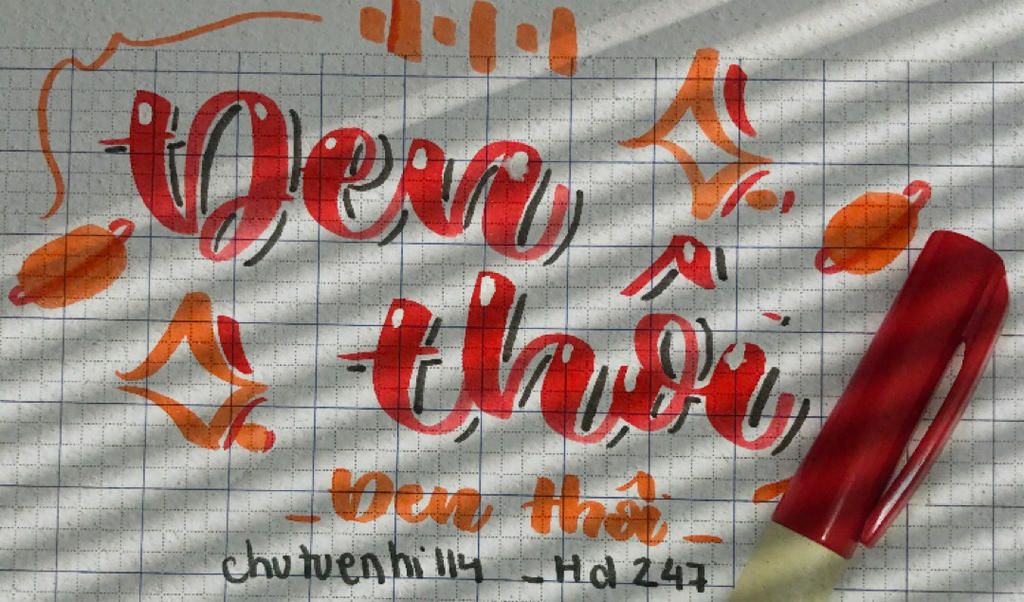 Đen
thôi
- Đen thôi -
chutuenhi114 - Hd 247